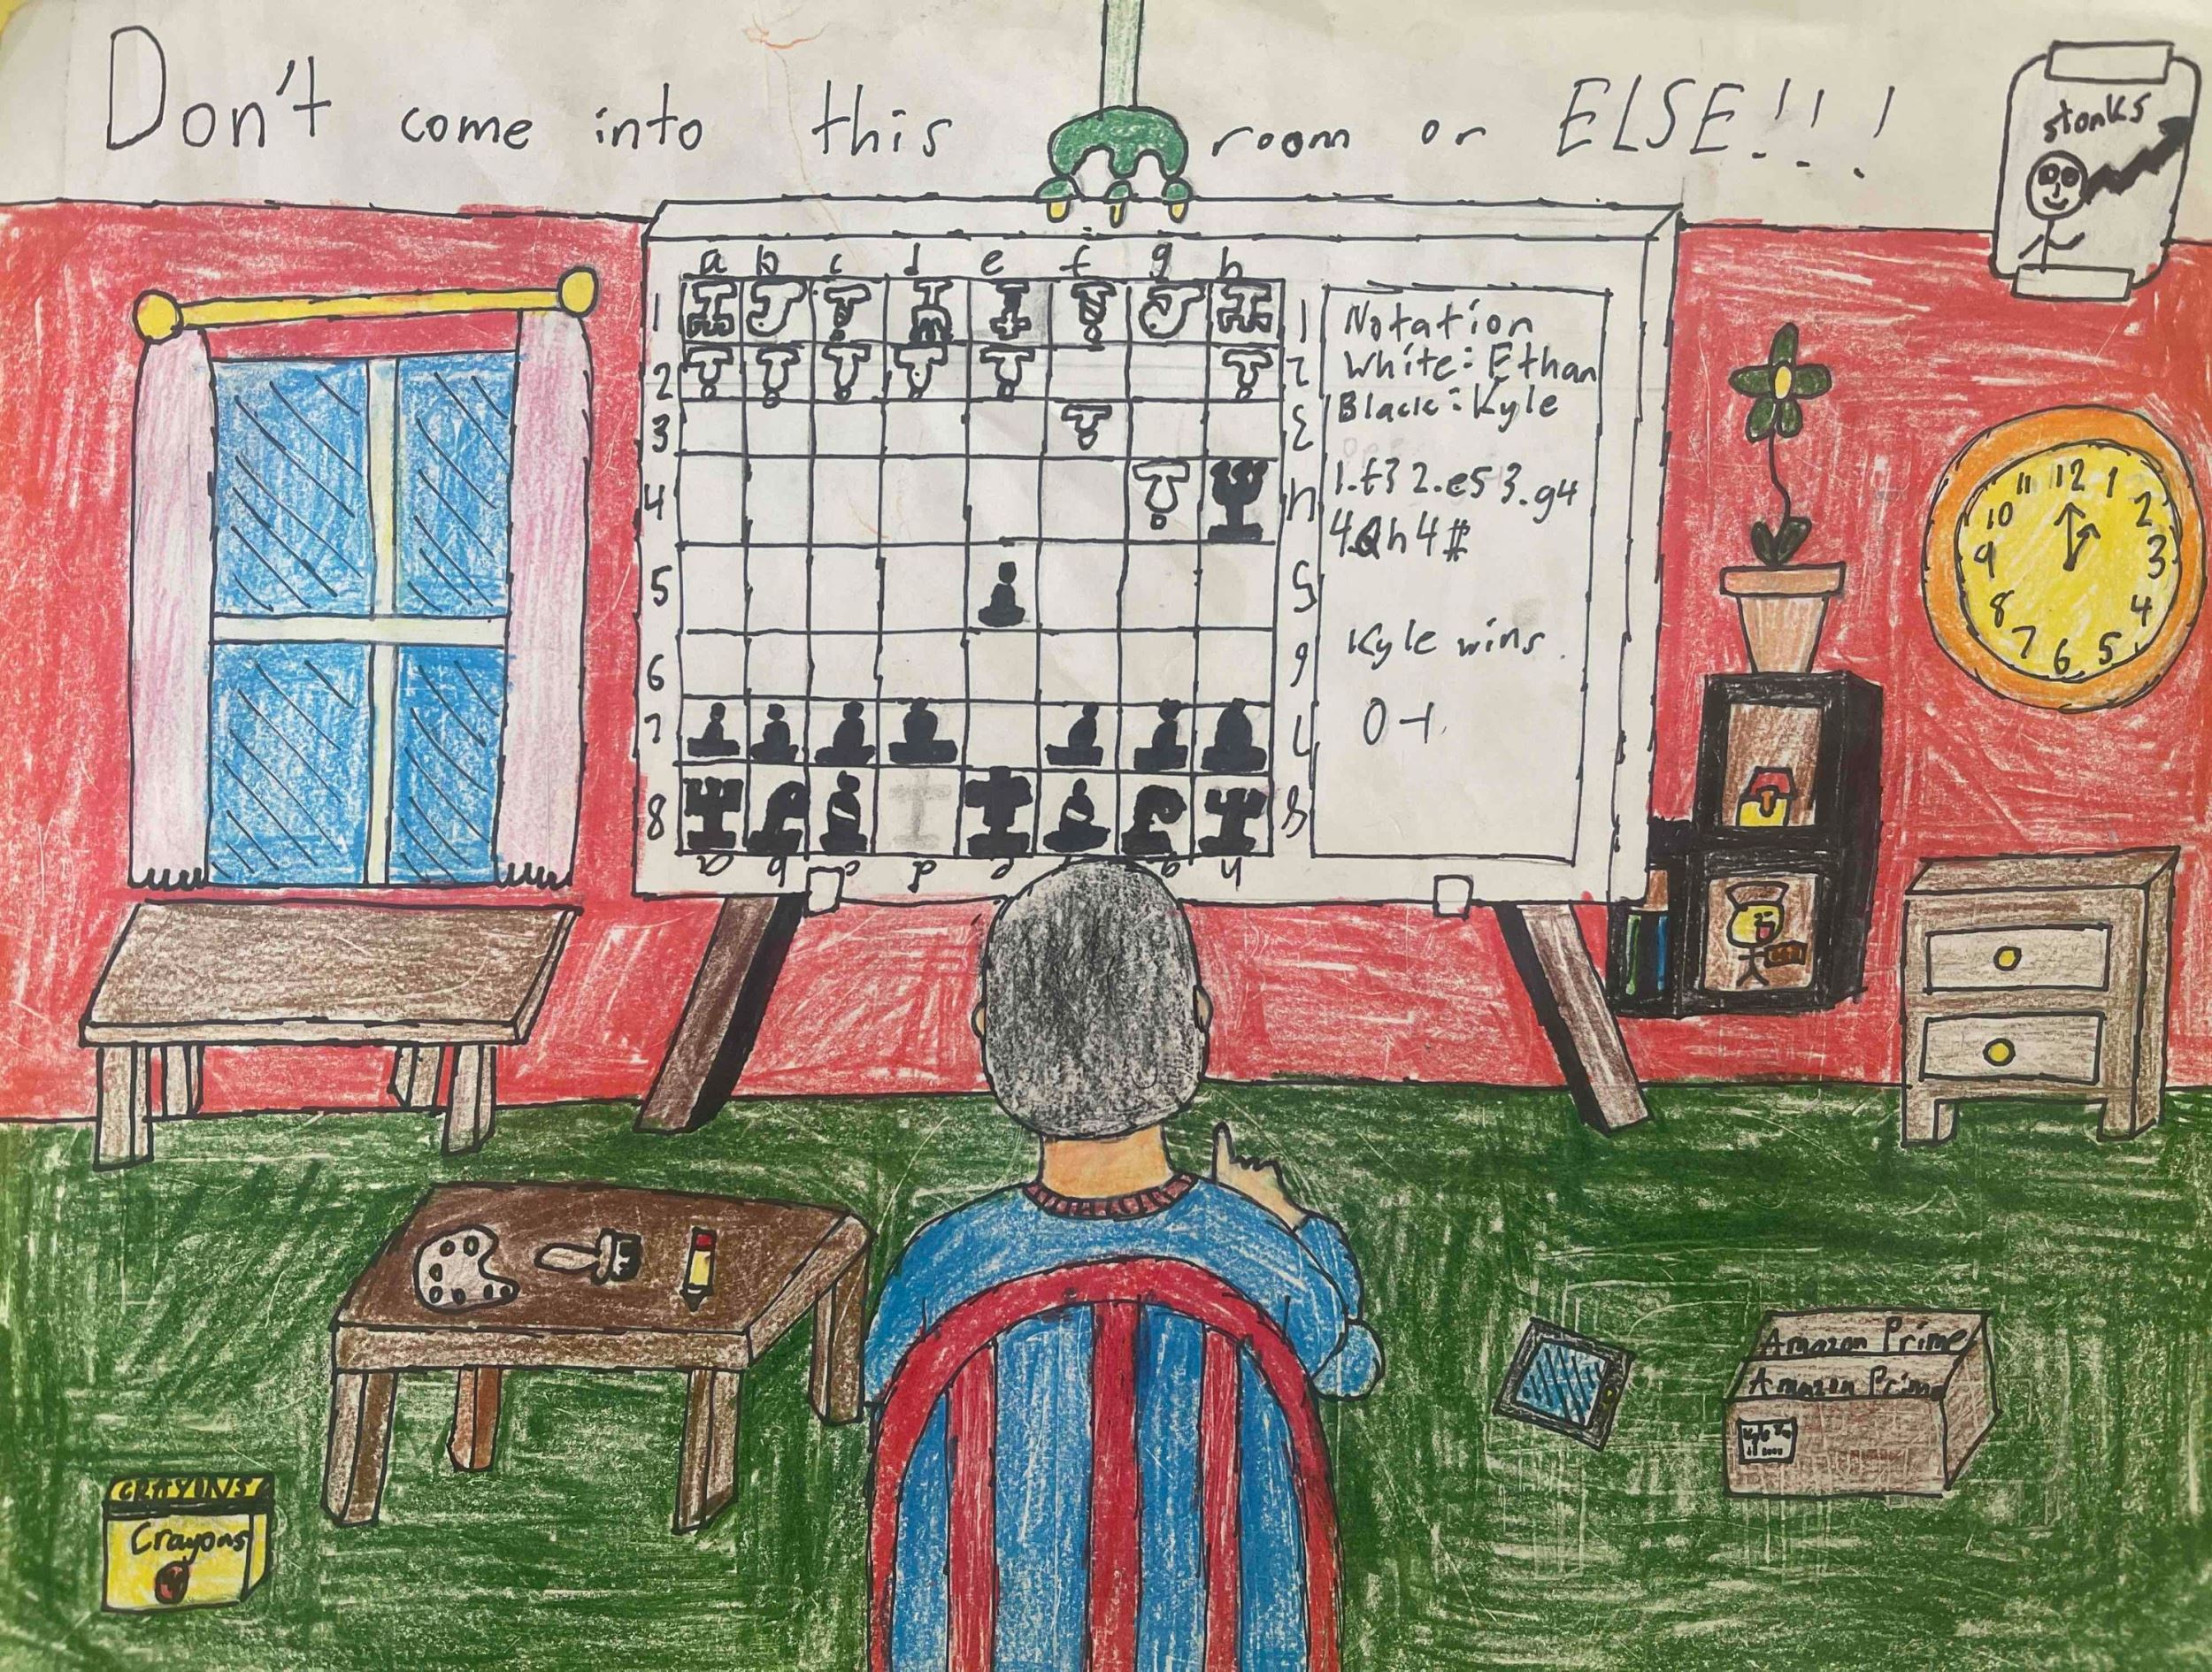 Don't come into this room or ELSE!!!
stonks
a b c d e f g h
1 1
2 2
3 3
4 4
5 5
6 6
7 7
8 8
a b c d e g h
Notation
White: Ethan
Black: Kyle
1.f3 2.e5 3.g4
4.Qh4#
Kyle wins.
0-1
11 12 1
10 2
9 3
8 4
7 6 5
Amazon Prime
Amazon Prime
CRAYONS
Crayons